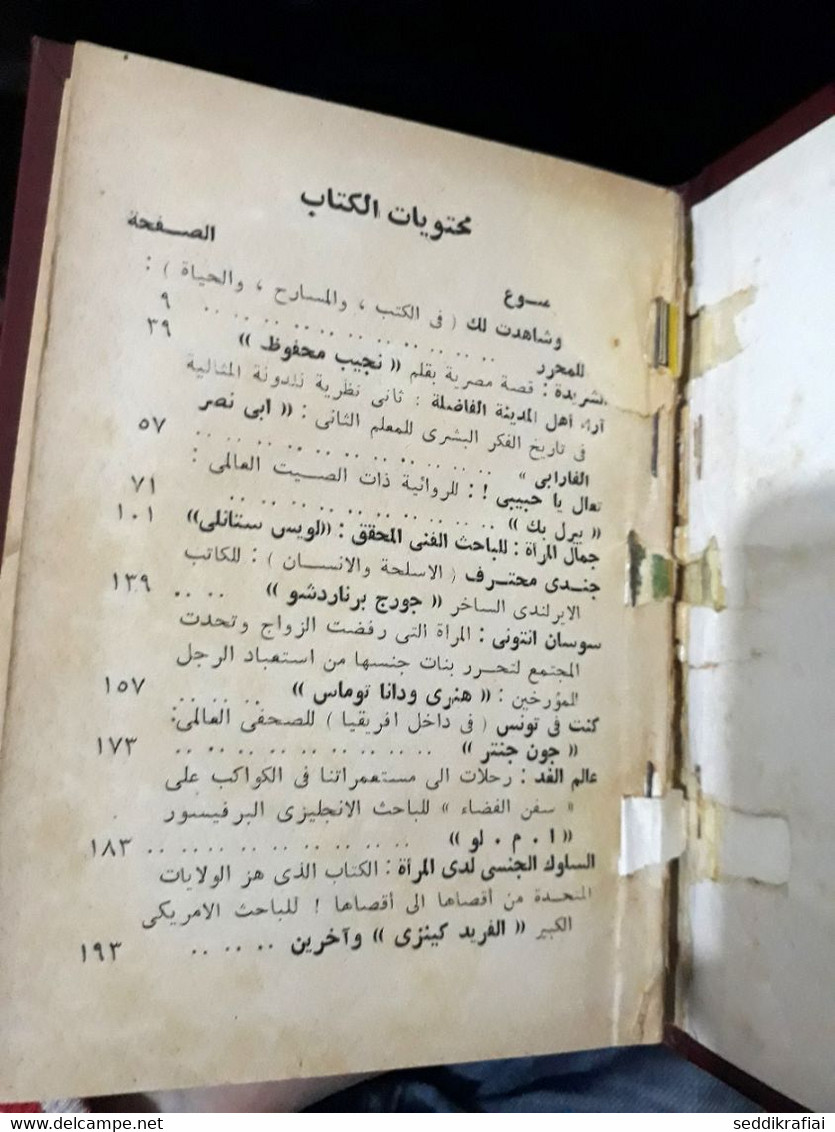 محتويات الكتاب
الصفحة
وشاهدت لك ( فى الكتب ، والمسارح ، والحياة ) :
للمحرر .. .. .. .. .. .. .. .. .. ٩
الشريدة : قصة مصرية بقلم « نجيب محفوظ » ٣٩
آراء أهل المدينة الفاضلة : ثانى نظرية للدولة المثالية
فى تاريخ الفكر البشرى للمعلم الثانى : « أبى نصر
الفارابى » .. .. .. .. .. .. .. .. ٥٧
تعال يا حبيبى ! : للروائية ذات الصيت العالمى :
« بيرل بك » .. .. .. .. .. .. .. ٧١
جمال المرأة : للباحث الفنى المحقق : «لويس ستانلى» ١٠١
جندى محترف ( الاسلحة والانسان ) : للكاتب
الايرلندى الساخر « جورج برناردشو » .. .. ١٣٩
سوسان انتونى : المرأة التى رفضت الزواج وتحدت
المجتمع لتحرر بنات جنسها من استعباد الرجل
للمؤرخين : « هنرى ودانا توماس » .. .. .. ١٥٧
كنت فى تونس ( فى داخل افريقيا ) للصحفى العالمى:
« جون جنتر » .. .. .. .. .. .. .. ١٧٣
عالم الغد : رحلات الى مستعمراتنا فى الكواكب على
« سفن الفضاء » للباحث الانجليزى البرفيسور
« ا . م . لو » .. .. .. .. .. .. .. ١٨٣
السلوك الجنسى لدى المرأة : الكتاب الذى هز الولايات
المتحدة من أقصاها الى أقصاها ! للباحث الامريكى
الكبير « الفريد كينزى » وآخرين .. .. .. ١٩٣
seddikrafiai